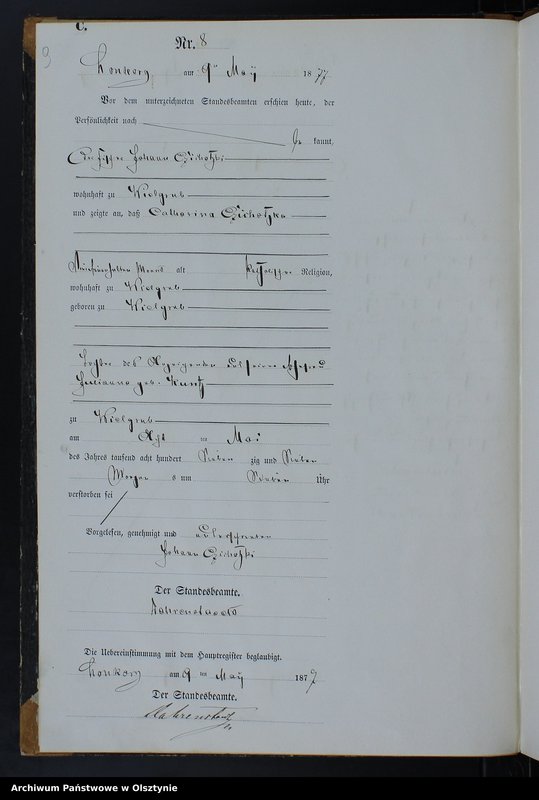 C.
Nr. 8
9
Lonkorz am 9ten May 1877
Vor dem unterzeichneten Standesbeamten erschien heute, der
Persönlichkeit nach
be kannt,
Johann Cichotzki
wohnhaft zu Wielgrub
und zeigte an, daß Catharina Cichotzka
alt katholischer Religion,
wohnhaft zu Wielgrub
geboren zu Wielgrub
Tochter des Anzeigenden und seiner Ehefrau
Julianna geb. Kuntz
zu Wielgrub
am Acht ten Mai
des Jahres tausend acht hundert Sieben zig und Sieben
Morgen s um Sieben Uhr
verstorben sei
Vorgelesen, genehmigt und unterschrieben
Johann Cichotzki
Der Standesbeamte.
Die Uebereinstimmung mit dem Hauptregister beglaubigt.
Lonkorz am 9 ten May 1877
Der Standesbeamte.
Archiwum Państwowe w Olsztynie